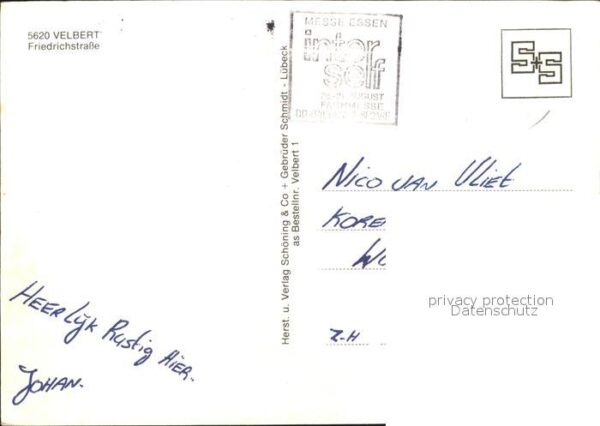 5620 VELBERT
Friedrichstraße
MESSE ESSEN
inter
self
AUGUST
FACHMESSE
S+S
Herst. u. Verlag Schöning & Co + Gebrüder Schmidt - Lübeck
as Bestellnr. Velbert 1
NICO VAN VLIET
KORE
Z-H
HEERLIJK RUSTIG HIER.
JOHAN.
privacy protection
Datenschutz